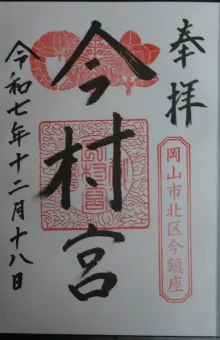 奉拝
岡山市北区今鎮座
今村宮
令和七年十二月十八日